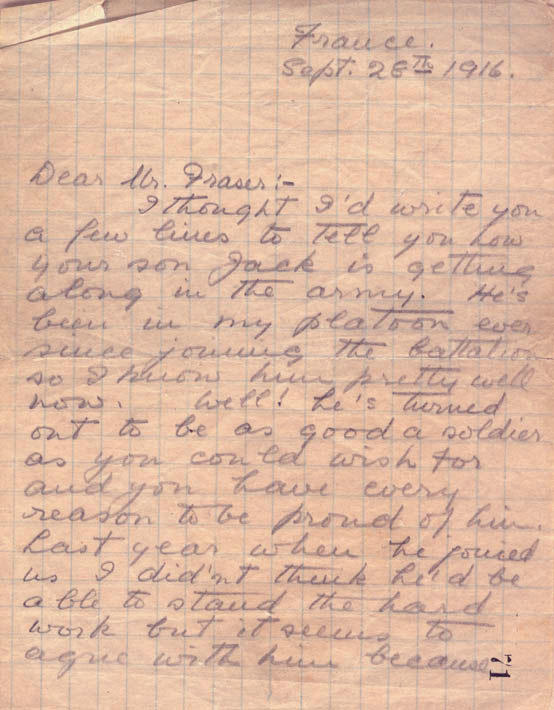 France.
Sept. 26th 1916.
Dear Mr. Fraser:-
I thought I'd write you
a few lines to tell you how
your son Jack is getting
along in the army. He's
been in my platoon ever
since joining the battalion
so I know him pretty well
now. Well! he's turned
out to be as good a soldier
as you could wish for
and you have every
reason to be proud of him.
Last year when he joined
us I didn't think he'd be
able to stand the hard
work but it seems to
agree with him because